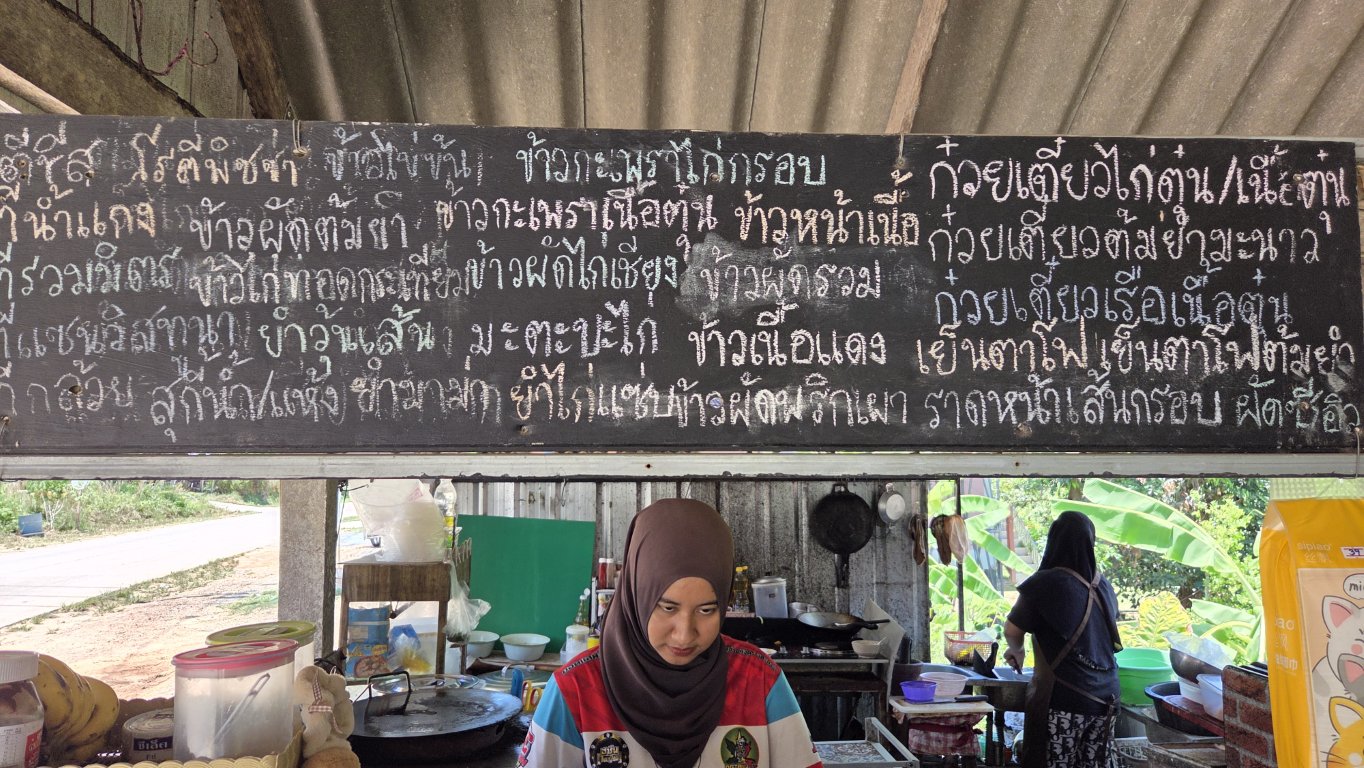 ตีชีส โรตีมิชช่า ข้าวไข่ข้น ข้าวกะเพราไก่กรอบ ก๋วยเตี๋ยวไก่ตุ๋น/เนื้อตุ๋น
น้ำแกง ข้าวผัดต้มยำ ข้าวกะเพราเนื้อตุ๋น ข้าวหน้าเนื้อ ก๋วยเตี๋ยวต้มยำมะนาว
รวมมิตร ข้าวไก่ทอดกะเทียม ข้าวผัดไก่เชียุง ข้าวผัดรวม ก๋วยเตี๋ยวเรือเนื้อตุ๋น
ยำวุ้นเส้น มะตะบะไก่ ข้าวเนื้อแดง เย็นตาโฟ เย็นตาโฟต้มยำ
กล้วย สุกี้น้ำ/แห้ง ยำมาม่า ยำไก่แซ่บ ข้าวผัดพริกเผา ราดหน้าเส้นกรอบ ผัดซีอิ๊ว